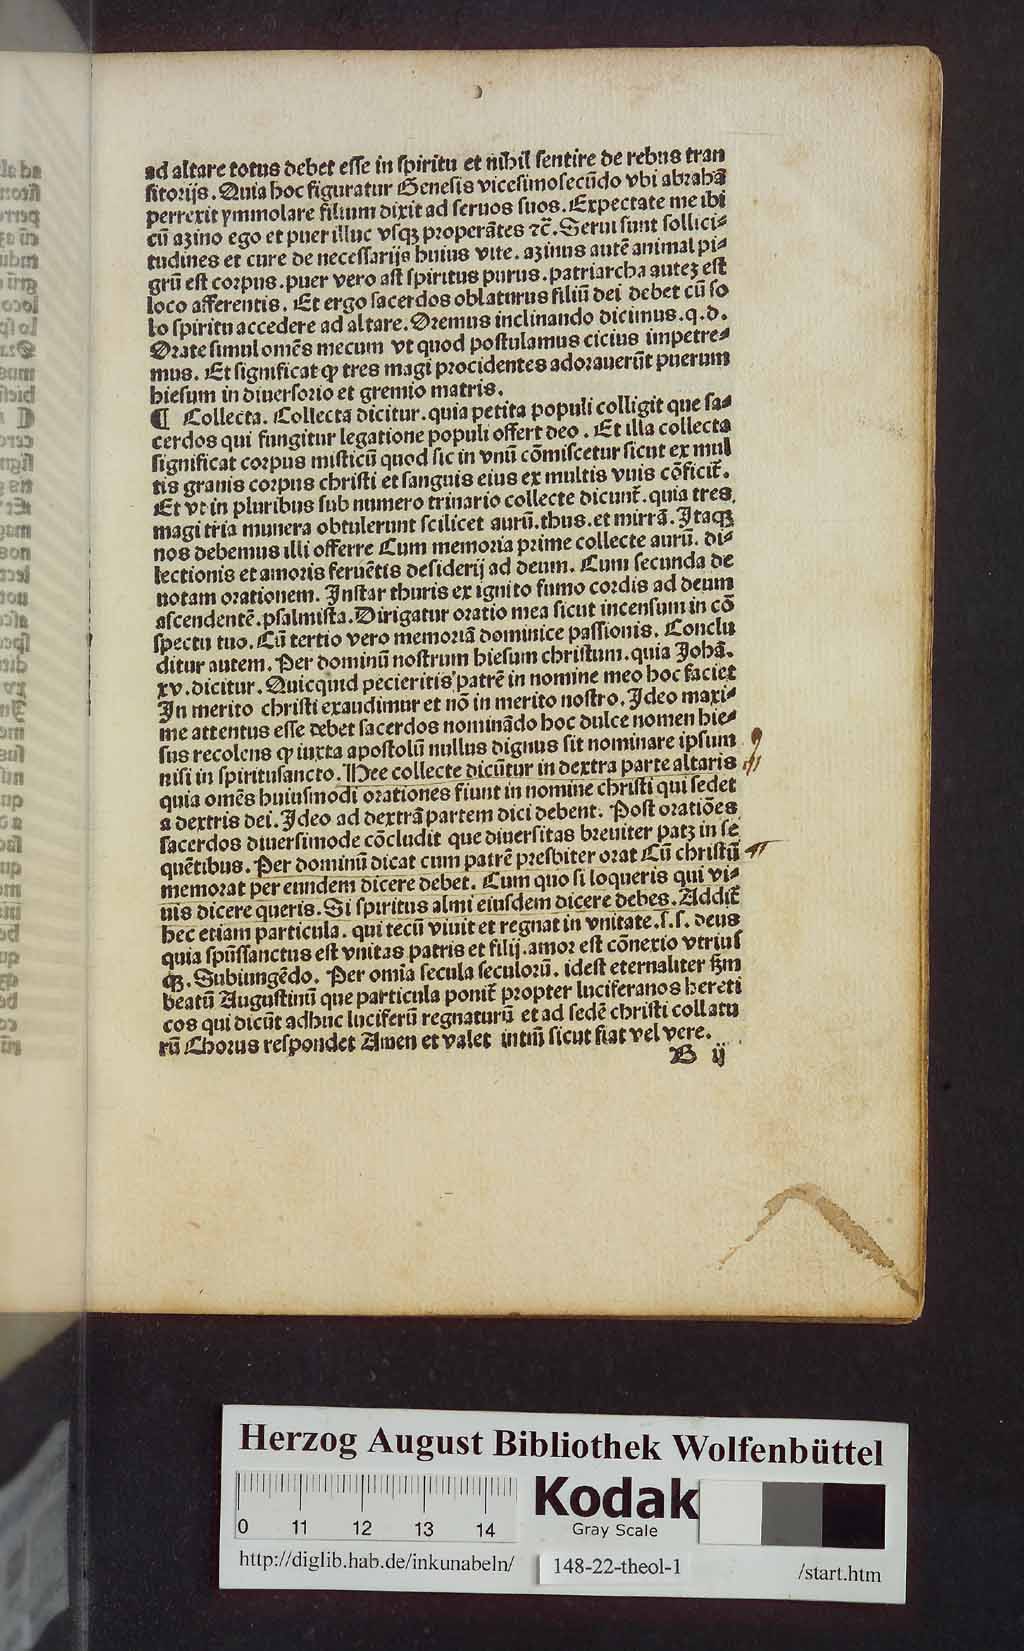 ad altare totus debet esse in spiritu et nihil sentire de rebus tran
sitorijs. Quia hoc figuratur Genesis vicesimosecūdo vbi abrahā
perrexit ymmolare filium dixit ad seruos suos. Expectate me ibi
cū azino ego et puer illuc vsqꝫ properātes ⁊c̄. Serui sunt sollici⸗
tudines et cure de necessarijs huius vite. azinus autē animal pi⸗
grū est corpus. puer vero ast spiritus purus. patriarcha auteꝫ est
loco afferentis. Et ergo sacerdos oblaturus filiū dei debet cū so
lo spiritu accedere ad altare. Oremus inclinando dicimus. q. d.
Orate simul omēs mecum vt quod postulamus cicius impetre⸗
mus. Et significat ꝙ tres magi procidentes adorauerūt puerum
hiesum in diuersorio et gremio matris.
¶ Collecta. Collecta dicitur. quia petita populi colligit que sa⸗
cerdos qui fungitur legatione populi offert deo. Et illa collecta
significat corpus misticū quod sic in vnū cōmiscetur sicut ex mul
tis granis corpus christi et sanguis eius ex multis vuis cōficit̄.
Et vt in pluribus sub numero trinario collecte dicunt̄. quia tres
magi tria munera obtulerunt scilicet aurū. thus. et mirrā. Itaqꝫ
nos debemus illi offerre Cum memoria prime collecte aurū. di⸗
lectionis et amoris feruētis desiderij ad deum. Cum secunda de
notam orationem. Instar thuris ex ignito fumo cordis ad deum
ascendentē. psalmista. Dirigatur oratio mea sicut incensum in cō
spectu tuo. Cū tertio vero memoriā dominice passionis. Conclu
ditur autem. Per dominū nostrum hiesum christum. quia Johā.
xv. dicitur. Quicquid pecieritis patrē in nomine meo hoc faciet
In merito christi exaudimur et nō in merito nostro. Ideo maxi⸗
me attentus esse debet sacerdos nominādo hoc dulce nomen hie⸗
sus recolens ꝙ iuxta apostolū nullus dignus sit nominare ipsum
nisi in spiritusancto. Hee collecte dicūtur in dextra parte altaris
quia omēs huiusmodi orationes fiunt in nomine christi qui sedet
a dextris dei. Ideo ad dextrā partem dici debent. Post oratiōes
sacerdos diuersimode cōcludit que diuersitas breuiter patꝫ in se
quētibus. Per dominū dicat cum patrē presbiter orat Cū christū
memorat per eundem dicere debet. Cum quo si loqueris qui vi⸗
uis dicere queris. Si spiritus almi eiusdem dicere debes. Addit̄
hec etiam particula. qui tecū viuit et regnat in vnitate. s. s. deus
quia spūssanctus est vnitas patris et filij. amor est cōnexio vtrius
qꝫ. Subiungēdo. Per omīa secula seculorū. idest eternaliter ẜm
beatū Augustinū que particula ponit̄ propter luciferanos hereti
cos qui dicūt adhuc luciferū regnaturū et ad sedē christi collatu
rū Chorus respondet Amen et valet intm̄ sicut fiat vel vere.
B ij
Herzog August Bibliothek Wolfenbüttel
0 11 12 13 14
Kodak
Gray Scale
http://diglib.hab.de/inkunabeln/ 148-22-theol-1 /start.htm